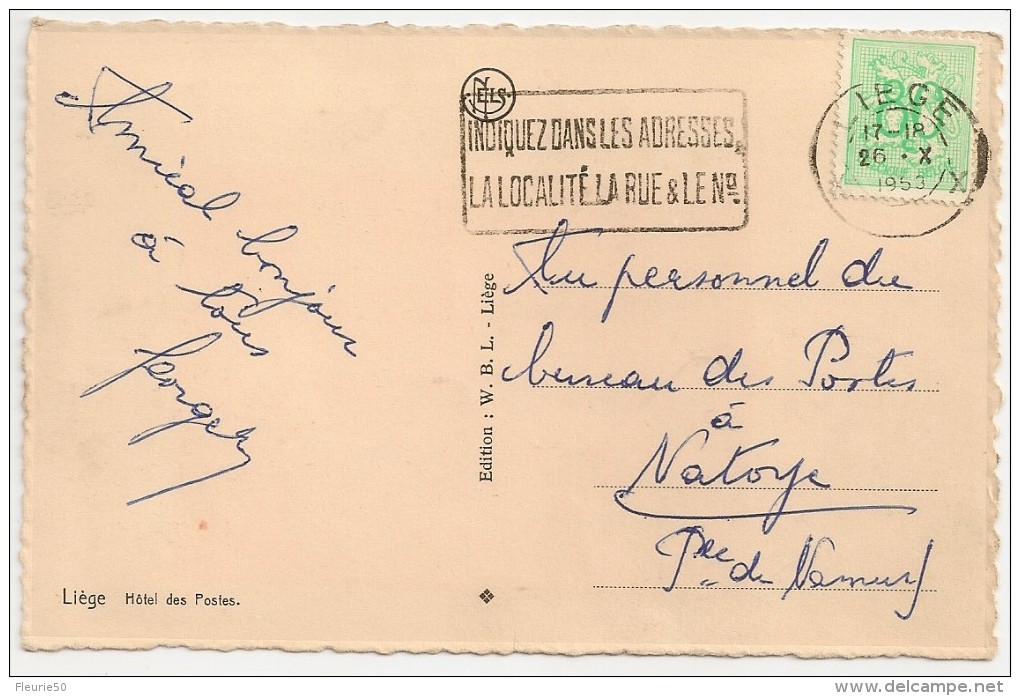 Amical bonjour
à tous
Georges
NELS
INDIQUEZ DANS LES ADRESSES,
LA LOCALITÉ, LA RUE & LE No.
LIEGE
17-18
26 · X
1953
Au personnel du
bureau des Postes
à
Natoye
Pce de Namur
Edition : W. B. L. - Liège
Liège Hôtel des Postes.
Fleurie50
www.delcampe.net